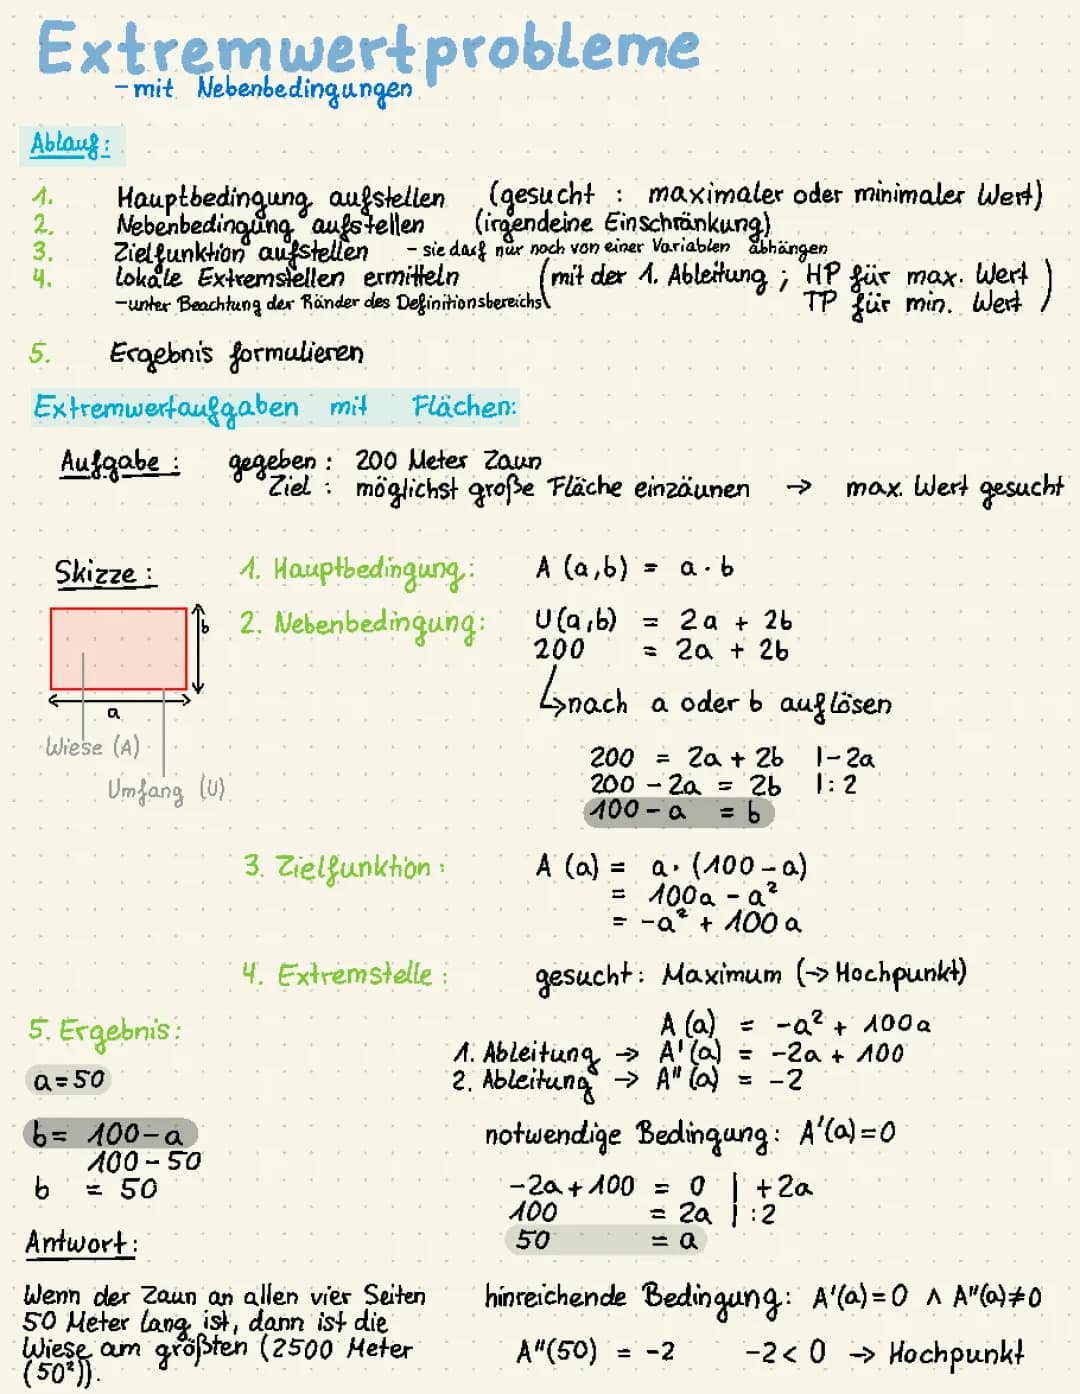 Extremwertprobleme
- mit Nebenbedingungen
Ablauf:
1. Hauptbedingung aufstellen (gesucht : maximaler oder minimaler Wert)
2. Nebenbedingung aufstellen (irgendeine Einschränkung)
3. Zielfunktion aufstellen - sie darf nur noch von einer Variablen abhängen
4. lokale Extremstellen ermitteln (mit der 1. Ableitung ; HP für max. Wert
-unter Beachtung der Ränder des Definitionsbereichs TP für min. Wert)
5. Ergebnis formulieren
Extremwertaufgaben mit Flächen:
Aufgabe : gegeben : 200 Meter Zaun
Ziel : möglichst große Fläche einzäunen → max. Wert gesucht
Skizze :
b
a
Wiese (A)
Umfang (U)
1. Hauptbedingung: A (a,b) = a · b
2. Nebenbedingung: U (a,b) = 2a + 2b
200 = 2a + 2b
↳ nach a oder b auflösen
200 = 2a + 2b |-2a
200 - 2a = 2b |: 2
100 - a = b
3. Zielfunktion : A (a) = a · (100 - a)
= 100a - a²
= -a² + 100a
4. Extremstelle : gesucht: Maximum (→ Hochpunkt)
A (a) = -a² + 100a
1. Ableitung → A' (a) = -2a + 100
2. Ableitung → A" (a) = -2
notwendige Bedingung: A'(a)=0
-2a + 100 = 0 | +2a
100 = 2a | :2
50 = a
hinreichende Bedingung: A'(a)=0 ∧ A"(a)≠0
A"(50) = -2 -2 < 0 → Hochpunkt
5. Ergebnis:
a = 50
b = 100-a
100 - 50
b = 50
Antwort:
Wenn der Zaun an allen vier Seiten
50 Meter lang ist, dann ist die
Wiese am größten (2500 Meter
(50²)).